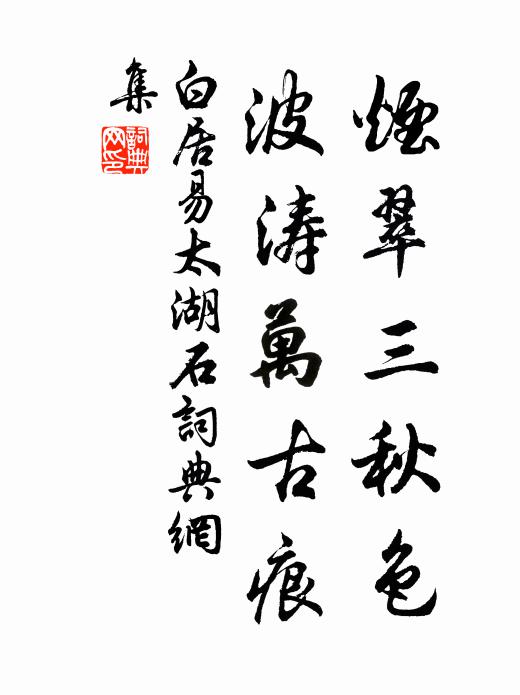 煙翠三秋色
波涛萬古痕
白居易太湖石詞典網
集
詞典
网印